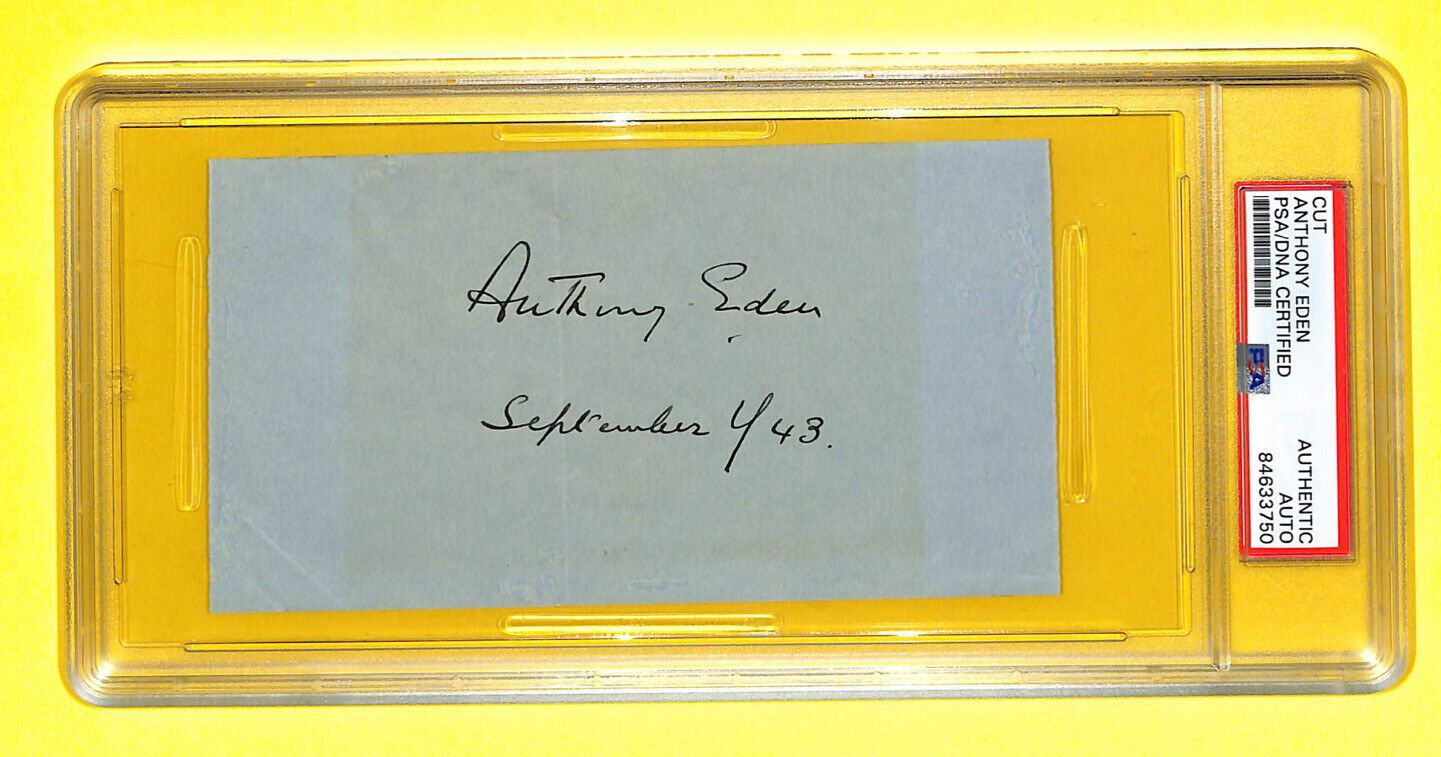 Anthony Eden
September 1/43.
CUT
ANTHONY EDEN
PSA/DNA CERTIFIED
PSA
AUTHENTIC
AUTO
84633750